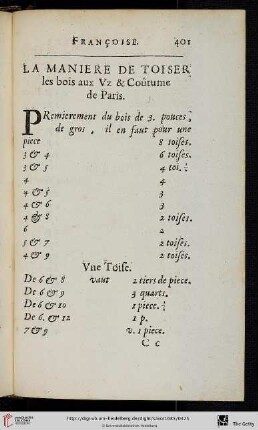 FRANÇOISE. 401
LA MANIERE DE TOISER
les bois aux Vz & Coûtume
de Paris.
PRemierement du bois de 3. pouces
de gros, il en faut pour une
piece 8 toises.
3 & 4 6 toises.
3 & 5 4 toi. ½
4 4
4 & 5 3
4 & 6 3
4 & 8 2 toises.
6 2
5 & 7 2 toises.
4 & 9 2 toises.
Vne Toise.
De 6 & 8 vaut 2 tiers de piece.
De 6 & 9 3 quarts.
De 6 & 10 1 piece.
De 6. & 12 1 p.
7 & 9 v. 1 piece.
C c
The Getty